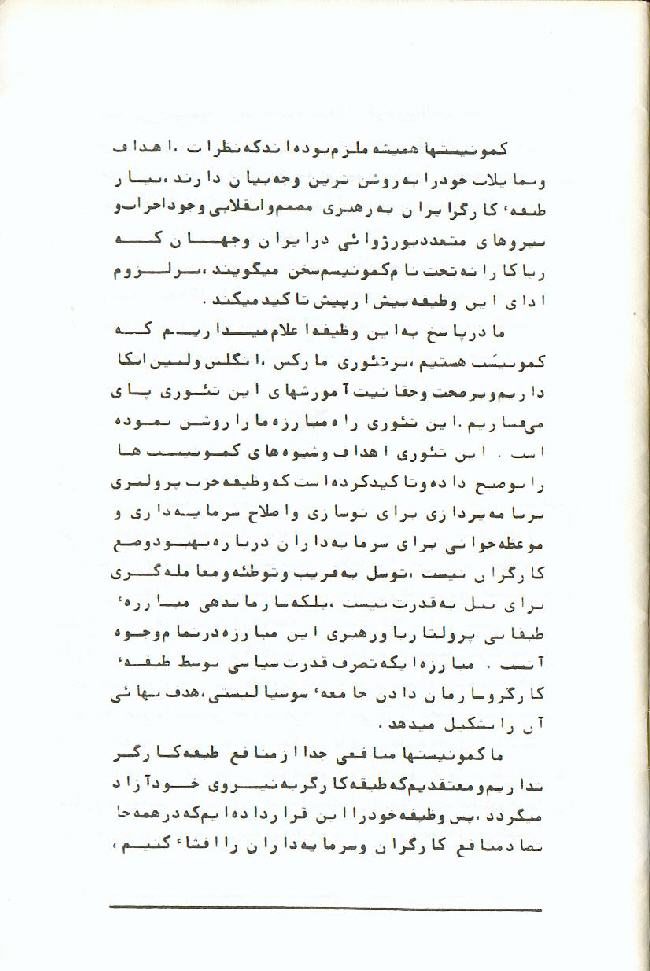 کمونیستها همیشه ملزم بوده‌اند که نظرات ، اهداف
و تمایلات خود را به روشن ترین وجه بیان دارند ، نیاز
طبقهٔ کارگر ایران به رهبری مصمم و انقلابی وجود احزاب و
نیروهای متعدد بورژوائی در ایران و جهان که
ریاکارانه تحت نام کمونیسم سخن میگویند ، بر لزوم
ادای این وظیفه بیش از پیش تاکید میکند .
ما در پاسخ به این وظیفه اعلام میداریم که
کمونیست هستیم ، بر تئوری مارکس ، انگلس و لنین اتکا
داریم و بر صحت و حقانیت آموزشهای این تئوری پای
می‌فشاریم . این تئوری راه مبارزه ما را روشن نموده
است . این تئوری اهداف و شیوه های کمونیست ها
را توضیح داده و تاکید کرده است که وظیفه حزب پرولتری
برنامه پردازی برای نوسازی و اصلاح سرمایه‌داری و
موعظه خوانی برای سرمایه‌داران درباره بهبود وضع
کارگران نیست ، توسل به فریب و توطئه و معامله گری
برای نیل به قدرت نیست ، بلکه سازماندهی مبارزهٔ
طبقاتی پرولتاریا و رهبری این مبارزه در تمام وجوه
آنست . مبارزه ایکه تصرف قدرت سیاسی توسط طبقهٔ
کارگر و سازمان دادن جامعهٔ سوسیالیستی ، هدف نهائی
آن را تشکیل میدهد .
ما کمونیستها منافعی جدا از منافع طبقه کارگر
نداریم و معتقدیم که طبقه کارگر به نیروی خود آزاد
میگردد ، پس وظیفه خود را این قرار داده ایم که در همه جا
تضاد منافع کارگران و سرمایه‌داران را افشاء کنیم ،